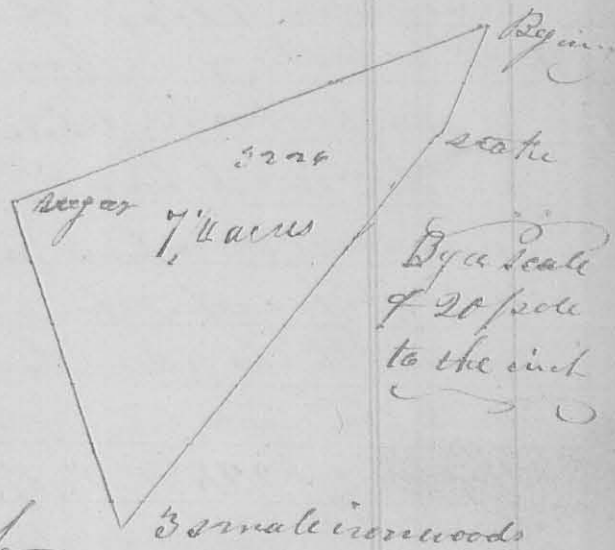 Begin
stake
3226
sugar
acres
By a Scale
of 20 pole
to the inch
3 small ironwoods